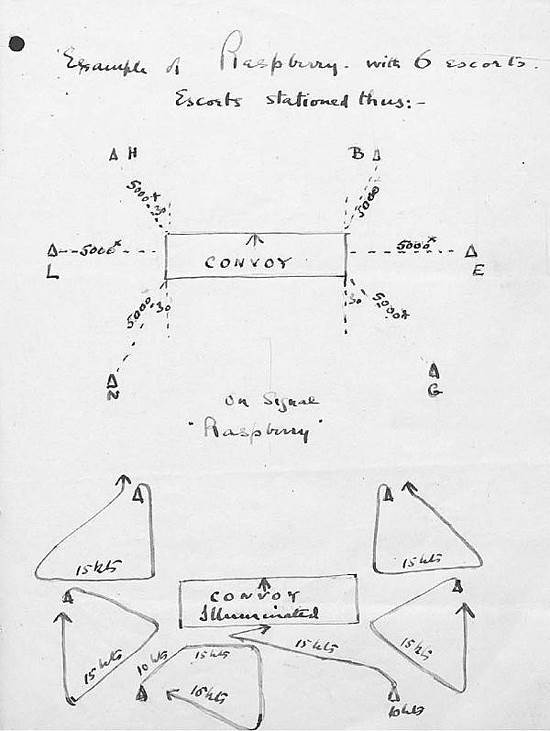 Example of Raspberry. with 6 escorts.
Escorts stationed thus:-
H B
5000x 30 5000x
5000x CONVOY 5000x
L E
5000 30 30 5000x
N G
On Signal
"Raspberry"
15 kts 15 kts
CONVOY
Illuminated
15 kts 10 kts 15 kts 15 kts 15 kts
10 kts 10 kts